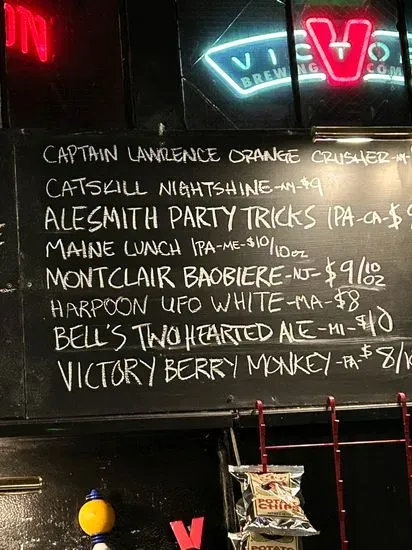 ON
VICTO
BREWING COM
V
CAPTAIN LAWRENCE ORANGE CRUSHER-
CATSKILL NIGHTSHINE-NY-$9
ALESMITH PARTY TRICKS IPA-CA-$9
MAINE LUNCH IPA-ME-$10/10oz
MONTCLAIR BAOBIERE-NJ-$9/10oz
HARPOON UFO WHITE-MA-$8
BELL'S TWO HEARTED ALE-MI-$10
VICTORY BERRY MONKEY-PA-$8/1
POTATO CHIPS
V